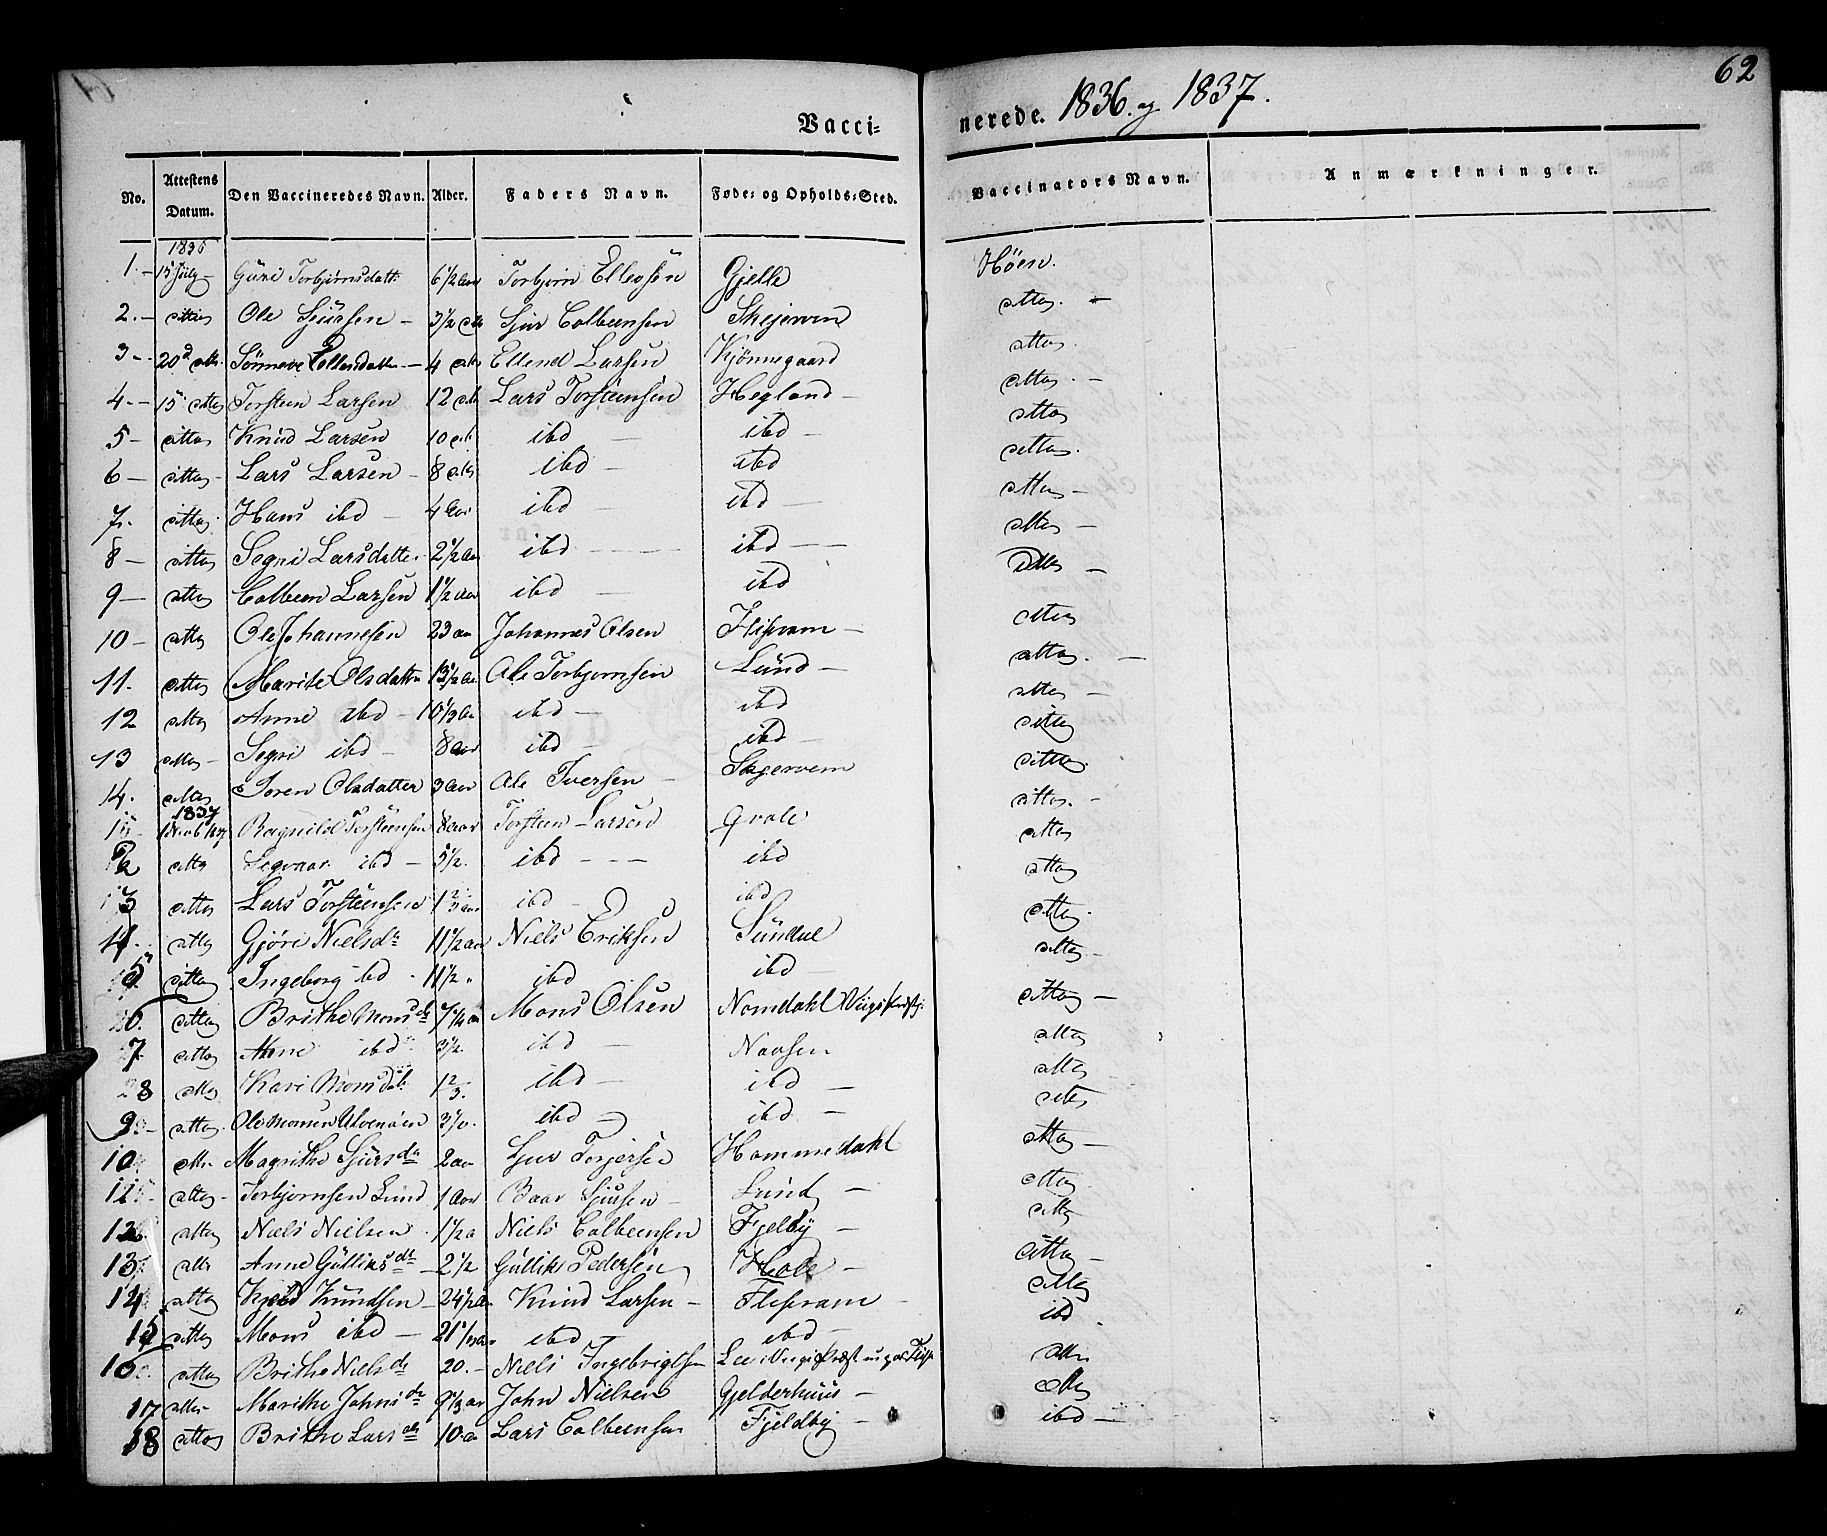 62
Vacci- nerede. 1836. og 1837.
No. Attestens Datum. Den Vaccineredes Navn. Alder. Faders Navn. Føde- og Opholds-Sted. Vaccinators Navn. Anmærkninger.
1836
1. 15 July Guri Torbjørnsdatt: 6 1/2 Aar Torbjørn Ellevsen Gjelle
2. ditto Ole Sjursen 3 1/2 Sjur Colbeensen Skjerven ditto
3 20d Sønneve 4 Ellend Larsen Kjønnegaard ditto
4. 15 ditto Torsteen Larsen 12 Lars Torsteensen Hegland ditto
5 ditto Knud Larsen 10 ibd ibd ditto
6 ditto Lars Larsen 8 ibd ibd ditto
7. ditto Hans ibd 4 Aar ibd ibd ditto
8 ditto Segri Larsdatter 2 1/2 Aar ibd ibd ditto
9 ditto Colbeen Larsen 1 1/2 Aar ibd ibd ditto
10 ditto Ole Johannesen 23 aar Johannes Olsen ditto
11. ditto Marite Olsdatter 13 1/2 Aar Ole Torbjørnsen Lund ditto
12 ditto Anne ibd 10 1/3 Aar ibd ibd ditto
13 ditto Segri ibd 8 Aar ibd ibd ditto
14. ditto Soren Olsdatter 3 Aar Ole Iversen Skjervem ditto
1837
Ragnild Torsteensen 8 aar Torsteen Larsen Qvale ditto
2 ditto ibd 5 1/2. ibd ibd ditto
3 ditto Lars Torsteensen 1 2/3 Aar ibd ibd ditto
4. ditto Gjøri Nielsdr 11 1/2 Aar Niels Eriksen Sundve ditto
5 ditto Ingeborg ibd 11 1/2 ibd ibd ditto
6. ditto Brithe Monsdr 7 1/4 aar Mons Olsen Nomdahl ditto
7 ditto Anne ibd 3 1/2. ibd ditto
8 ditto Kari Monsdtr 1 2/3. ibd ibd ditto
9. ditto Ole ibd ibd ditto
10 ditto Magrithe Sjursdr 2 aar Sjur Torjersen Hommedahl ditto
11 ditto Torbjørnsen Lund 1 Aar Baar Sjursen Lund ditto
12 ditto Niels Nielsen 1 1/2 a Niels Colbeensen Fjelby ditto
13 ditto Anne Gulliksdtr 2 1/2 Gullik Pedersen Hole ditto
14 ditto Knudsen 24 1/2 Aar Knud Larsen ditto
15 ditto Mons ibd 21 ibd ibd ibd
16 ditto Brithe Nielsdr 20. Niels Ingebrigtsen ditto
17 ditto Marithe Johnsdr 9 1/3 aar John Nielsen Gjelderhuus ditto
18 ditto Brithe Larsdtr 10 a Lars Colbeensen Fjeldby ibd